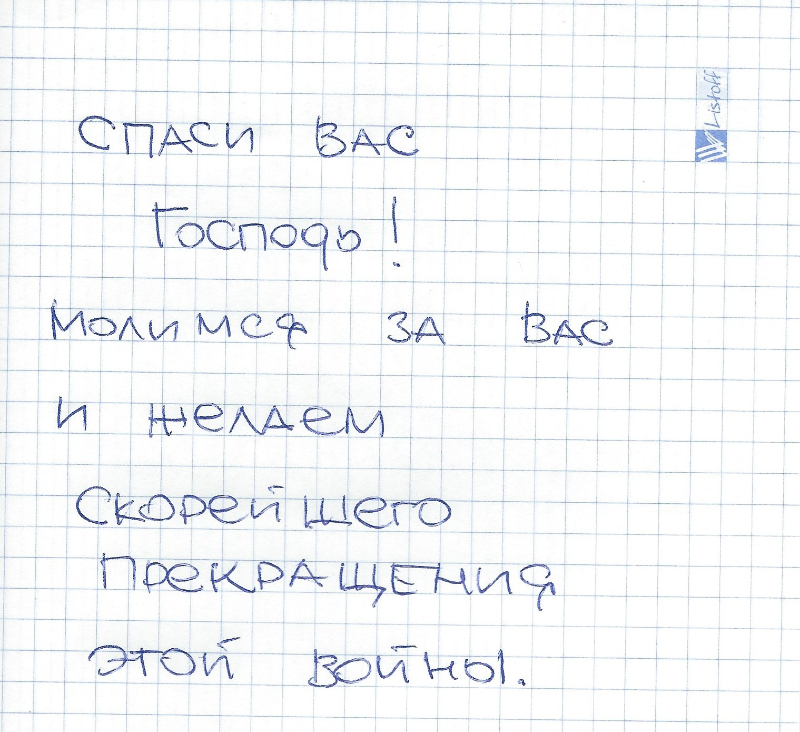 СПАСИ ВАС
Господь!
МОЛИМСЯ ЗА ВАС
И ЖЕЛАЕМ
Скорейшего
ПРЕКРАЩЕНИЯ
ЭТОЙ ВОЙНЫ.
Listoff